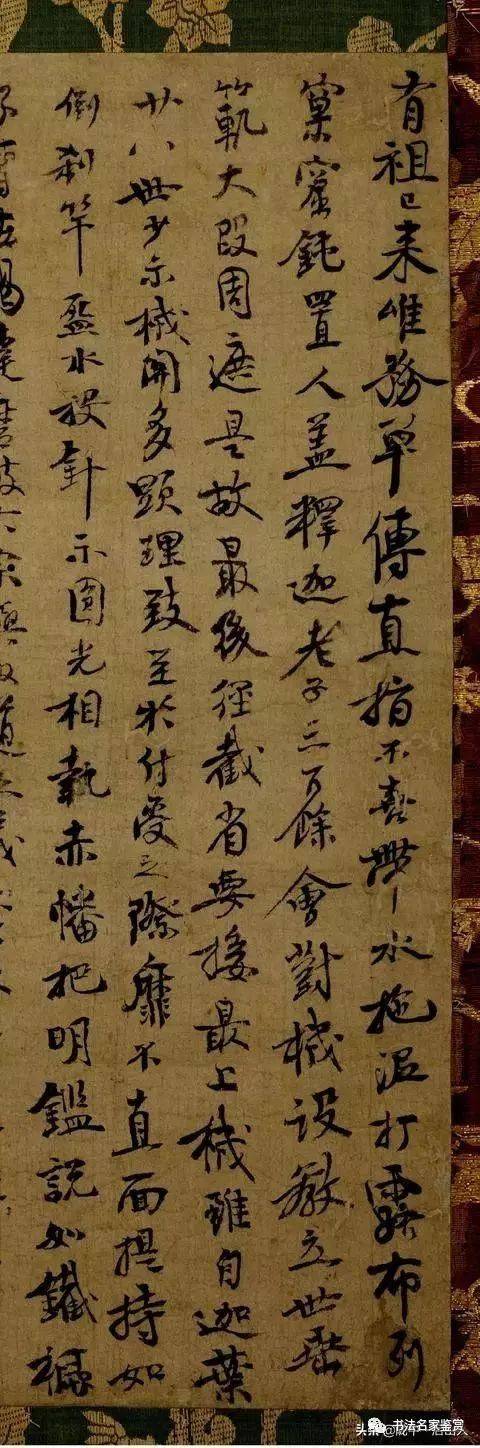 有祖已来唯務單傳直指不喜帶水拖泥打露布列
窠窟鈍置人蓋釋迦老子三百餘會對機設教立世垂
範大段周遮是故最後徑截省要接最上機雖自迦葉
廿八世少示機關多顯理致至於付受之際靡不直面提持如
倒刹竿盋水投針示圓光相執赤幡把明鑑説如鐵橛
书法名家鉴赏